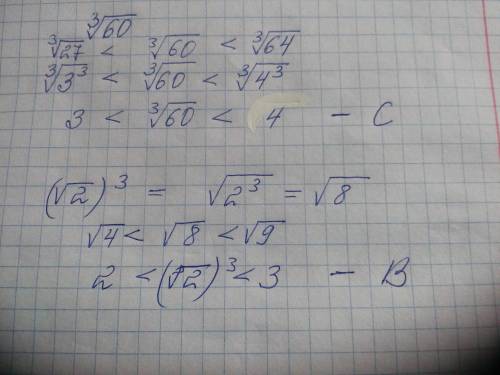 ∛60
∛27 < ∛60 < ∛64
∛3³ < ∛60 < ∛4³
3 < ∛60 < 4 – C
(√2)³ = √2³ = √8
√4 < √8 < √9
2 < (√2)³ < 3 – B